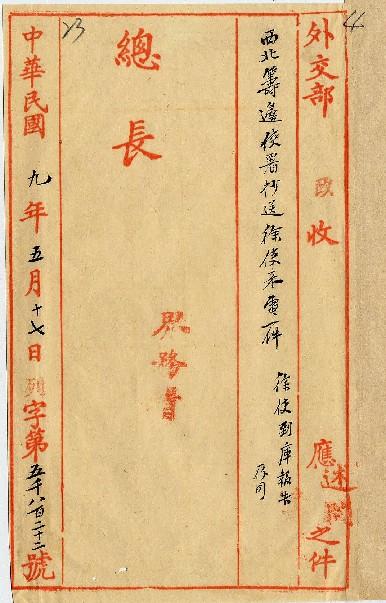 外交部 政 收 應述閱之件
西北籌邊使署抄送徐使來電一件
徐使到庫報告
總長
中華民國九年五月十七日 列字第五千八百二十二號
23